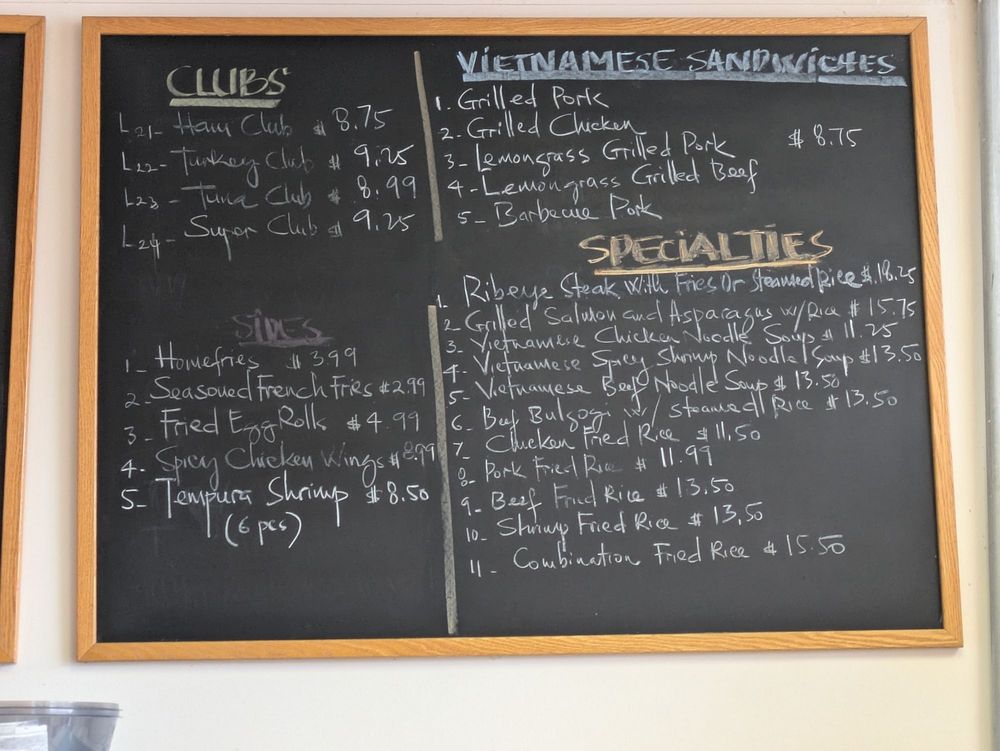 CLUBS
L21- Ham Club $ 8.75
L22- Turkey Club $ 9.25
L23- Tuna Club $ 8.99
L24- Super Club $ 9.25
SIDES
1- Homefries $ 3.99
2- Seasoned French Fries $2.99
3- Fried Egg Rolls $ 4.99
4- Spicy Chicken Wings $ 8.99
5- Tempura Shrimp $ 8.50
(6 pcs)
VIETNAMESE SANDWICHES
1. Grilled Pork
2- Grilled Chicken
$ 8.75
3- Lemongrass Grilled Pork
4- Lemongrass Grilled Beef
5- Barbecue Pork
SPECIALTIES
1. Ribeye Steak With Fries Or Steamed Rice $ 18.25
2- Grilled Salmon and Asparagus w/ Rice $ 15.75
3- Vietnamese Chicken Noodle Soup $ 11.25
4- Vietnamese Spicy Shrimp Noodle Soup $13.50
5- Vietnamese Beef Noodle Soup $ 13.50
6- Beef Bulgogi w/ Steamed Rice $ 13.50
7- Chicken Fried Rice $ 11.50
8- Pork Fried Rice $ 11.99
9- Beef Fried Rice $ 13.50
10- Shrimp Fried Rice $ 13.50
11- Combination Fried Rice $ 15.50